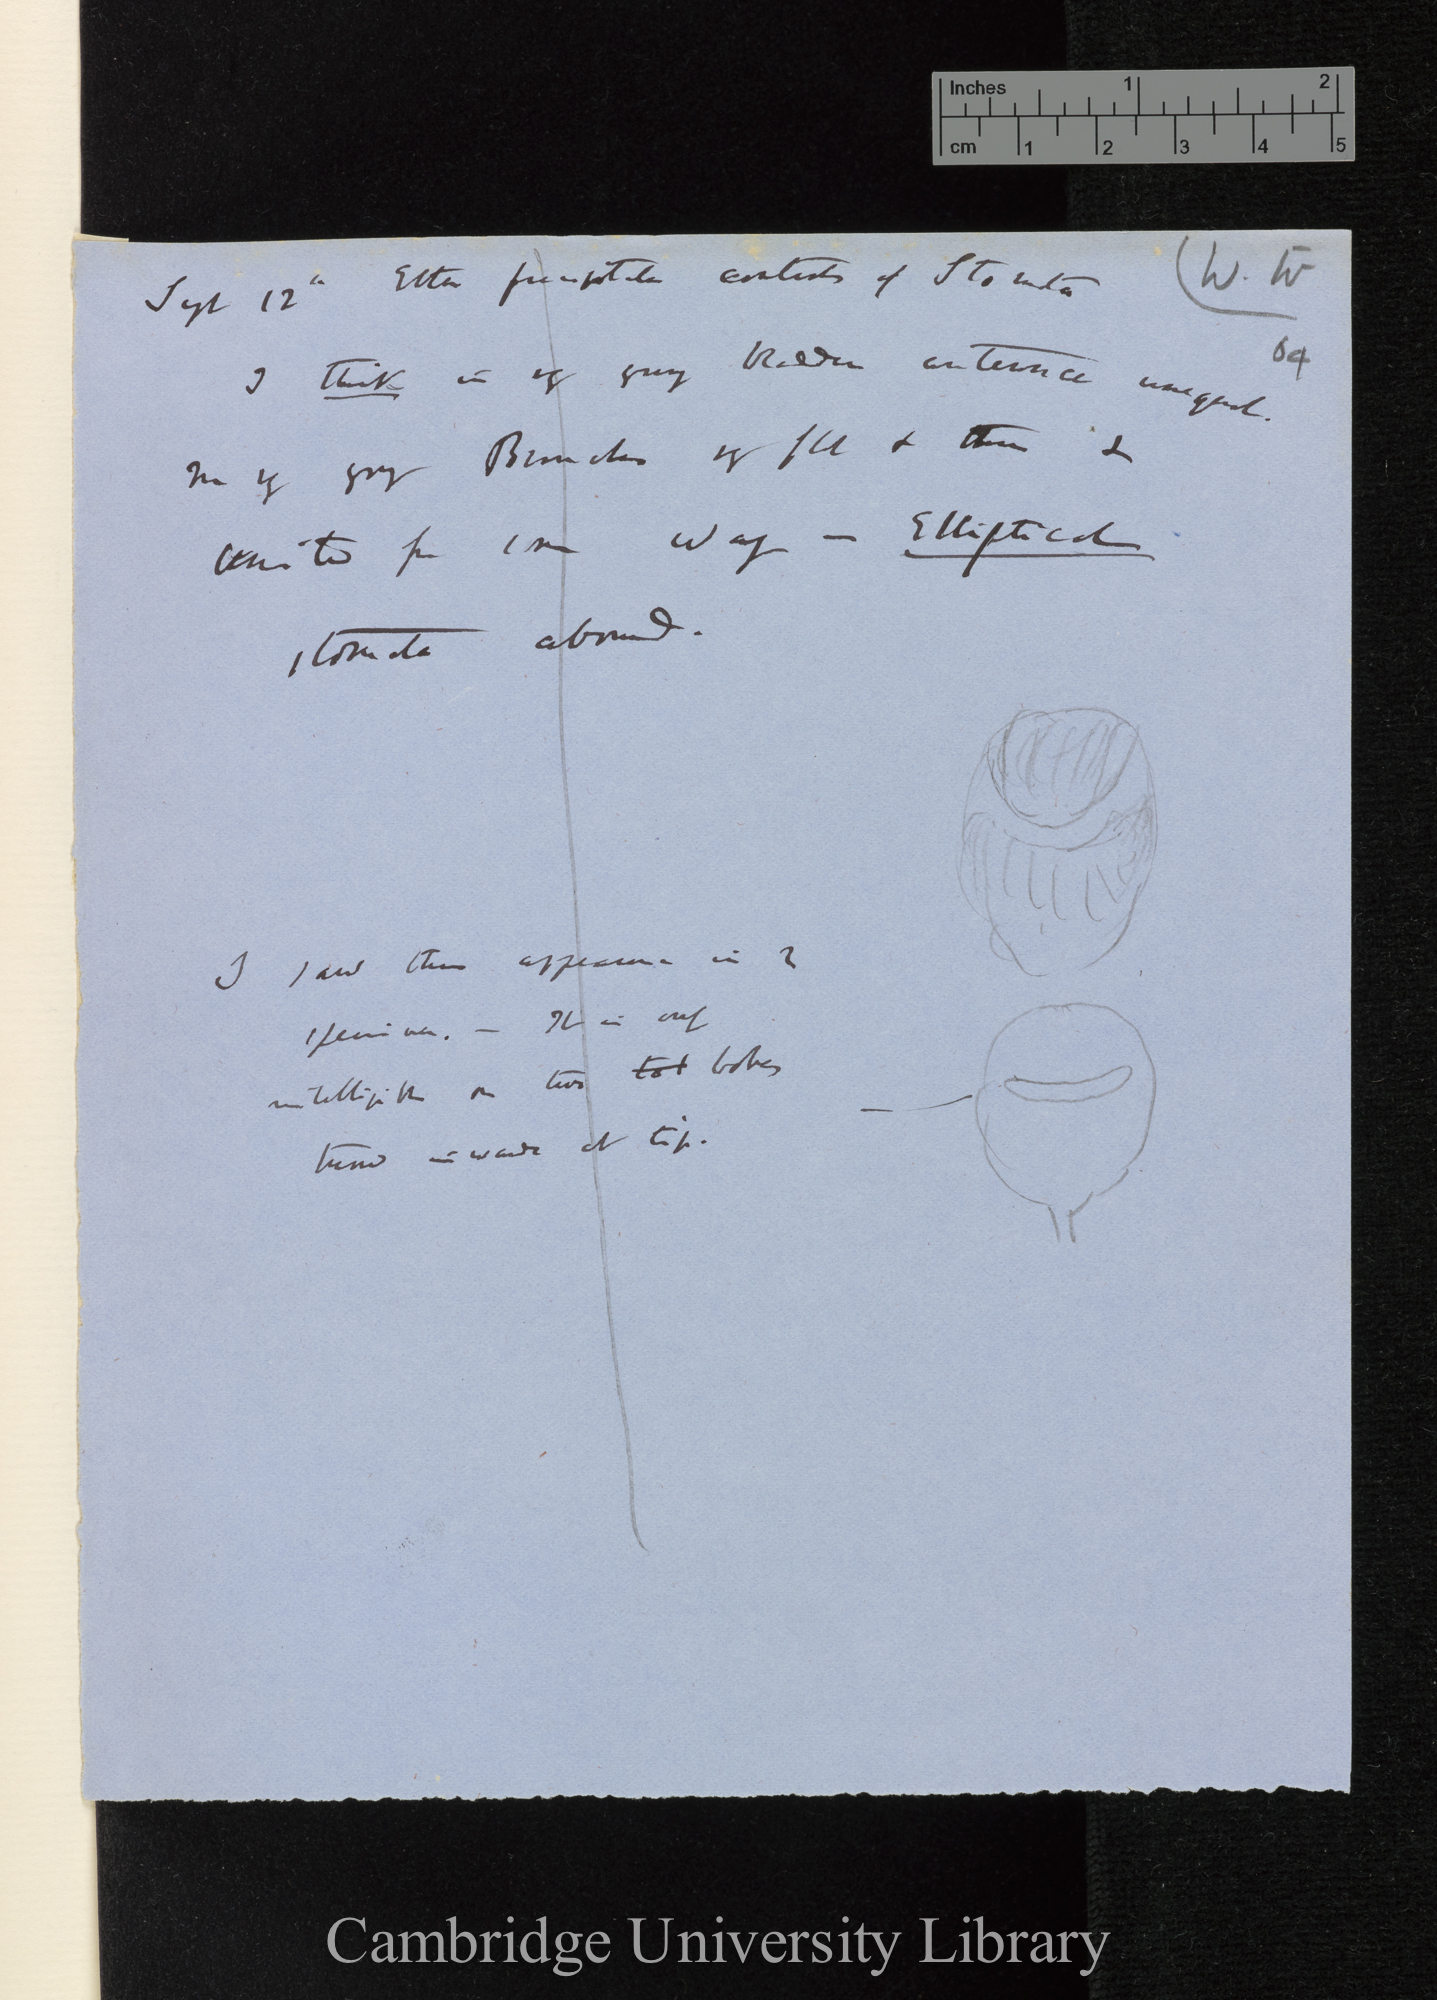 Inches 1 2
cm 1 2 3 4 5
Sept 12th Ether precipitates contents of Stomata
(W. W
64
I think in very young bladder antennae unequal.
In very young Bladders very full & then
for some way — Elliptical
stomata abound.
I saw this appearance in 2
specimens. — It is only
intelligible on two tot lobes
turned inwards at tip.
Cambridge University Library